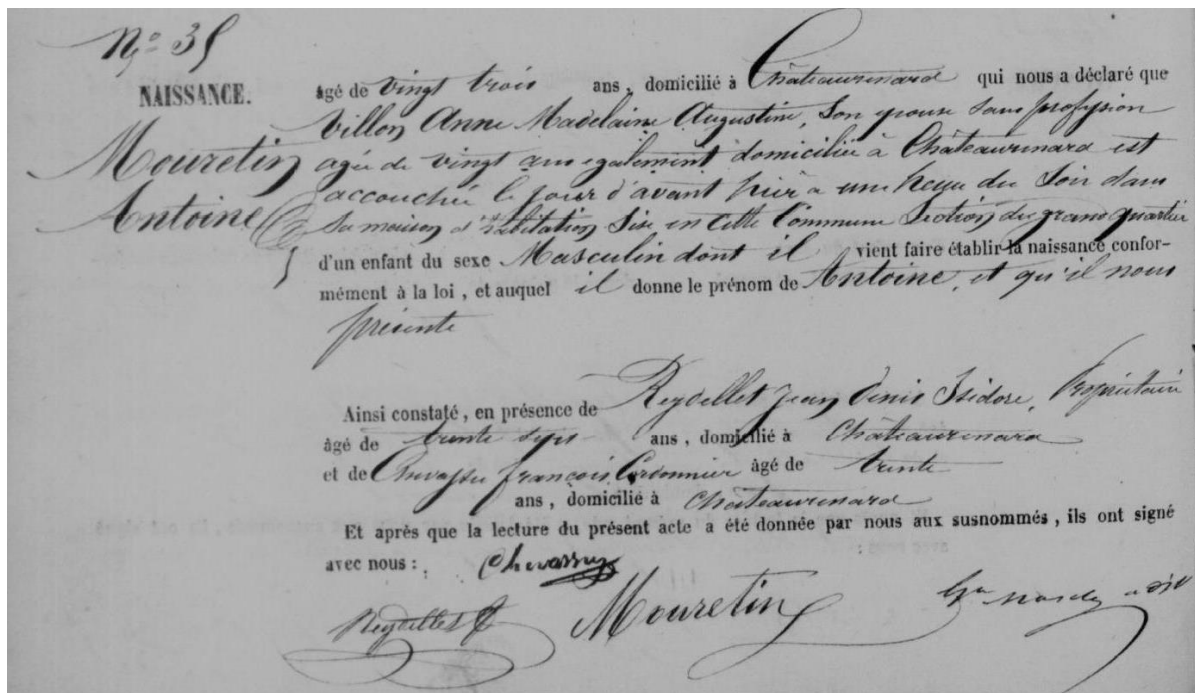 No 35
NAISSANCE.
Mouretin
Antoine
âgé de vingt trois ans, domicilié à Châteaurenard qui nous a déclaré que
Villon Anne Madelaine Augustine, Son épouse Sans profession
agée de vingt ans également domiciliée à Châteaurenard est
accouchée le jour d'avant hier a une heure du Soir dans
Sa maison d'habitation Sise en cette Commune Section du grand quartier
d'un enfant du sexe Masculin dont il vient faire établir la naissance confor-
mément à la loi, et auquel il donne le prénom de Antoine, et qu'il nous
présente
Ainsi constaté, en présence de Reydellet Jean Denis Isidore, Propriétaire
âgé de trente sept ans, domicilié à Châteaurenard
et de Chevassu françois Cordonnier âgé de trente
ans, domicilié à Châteaurenard
Et après que la lecture du présent acte a été donnée par nous aux susnommés, ils ont signé
avec nous : Chevassu
Reydellet Mouretin